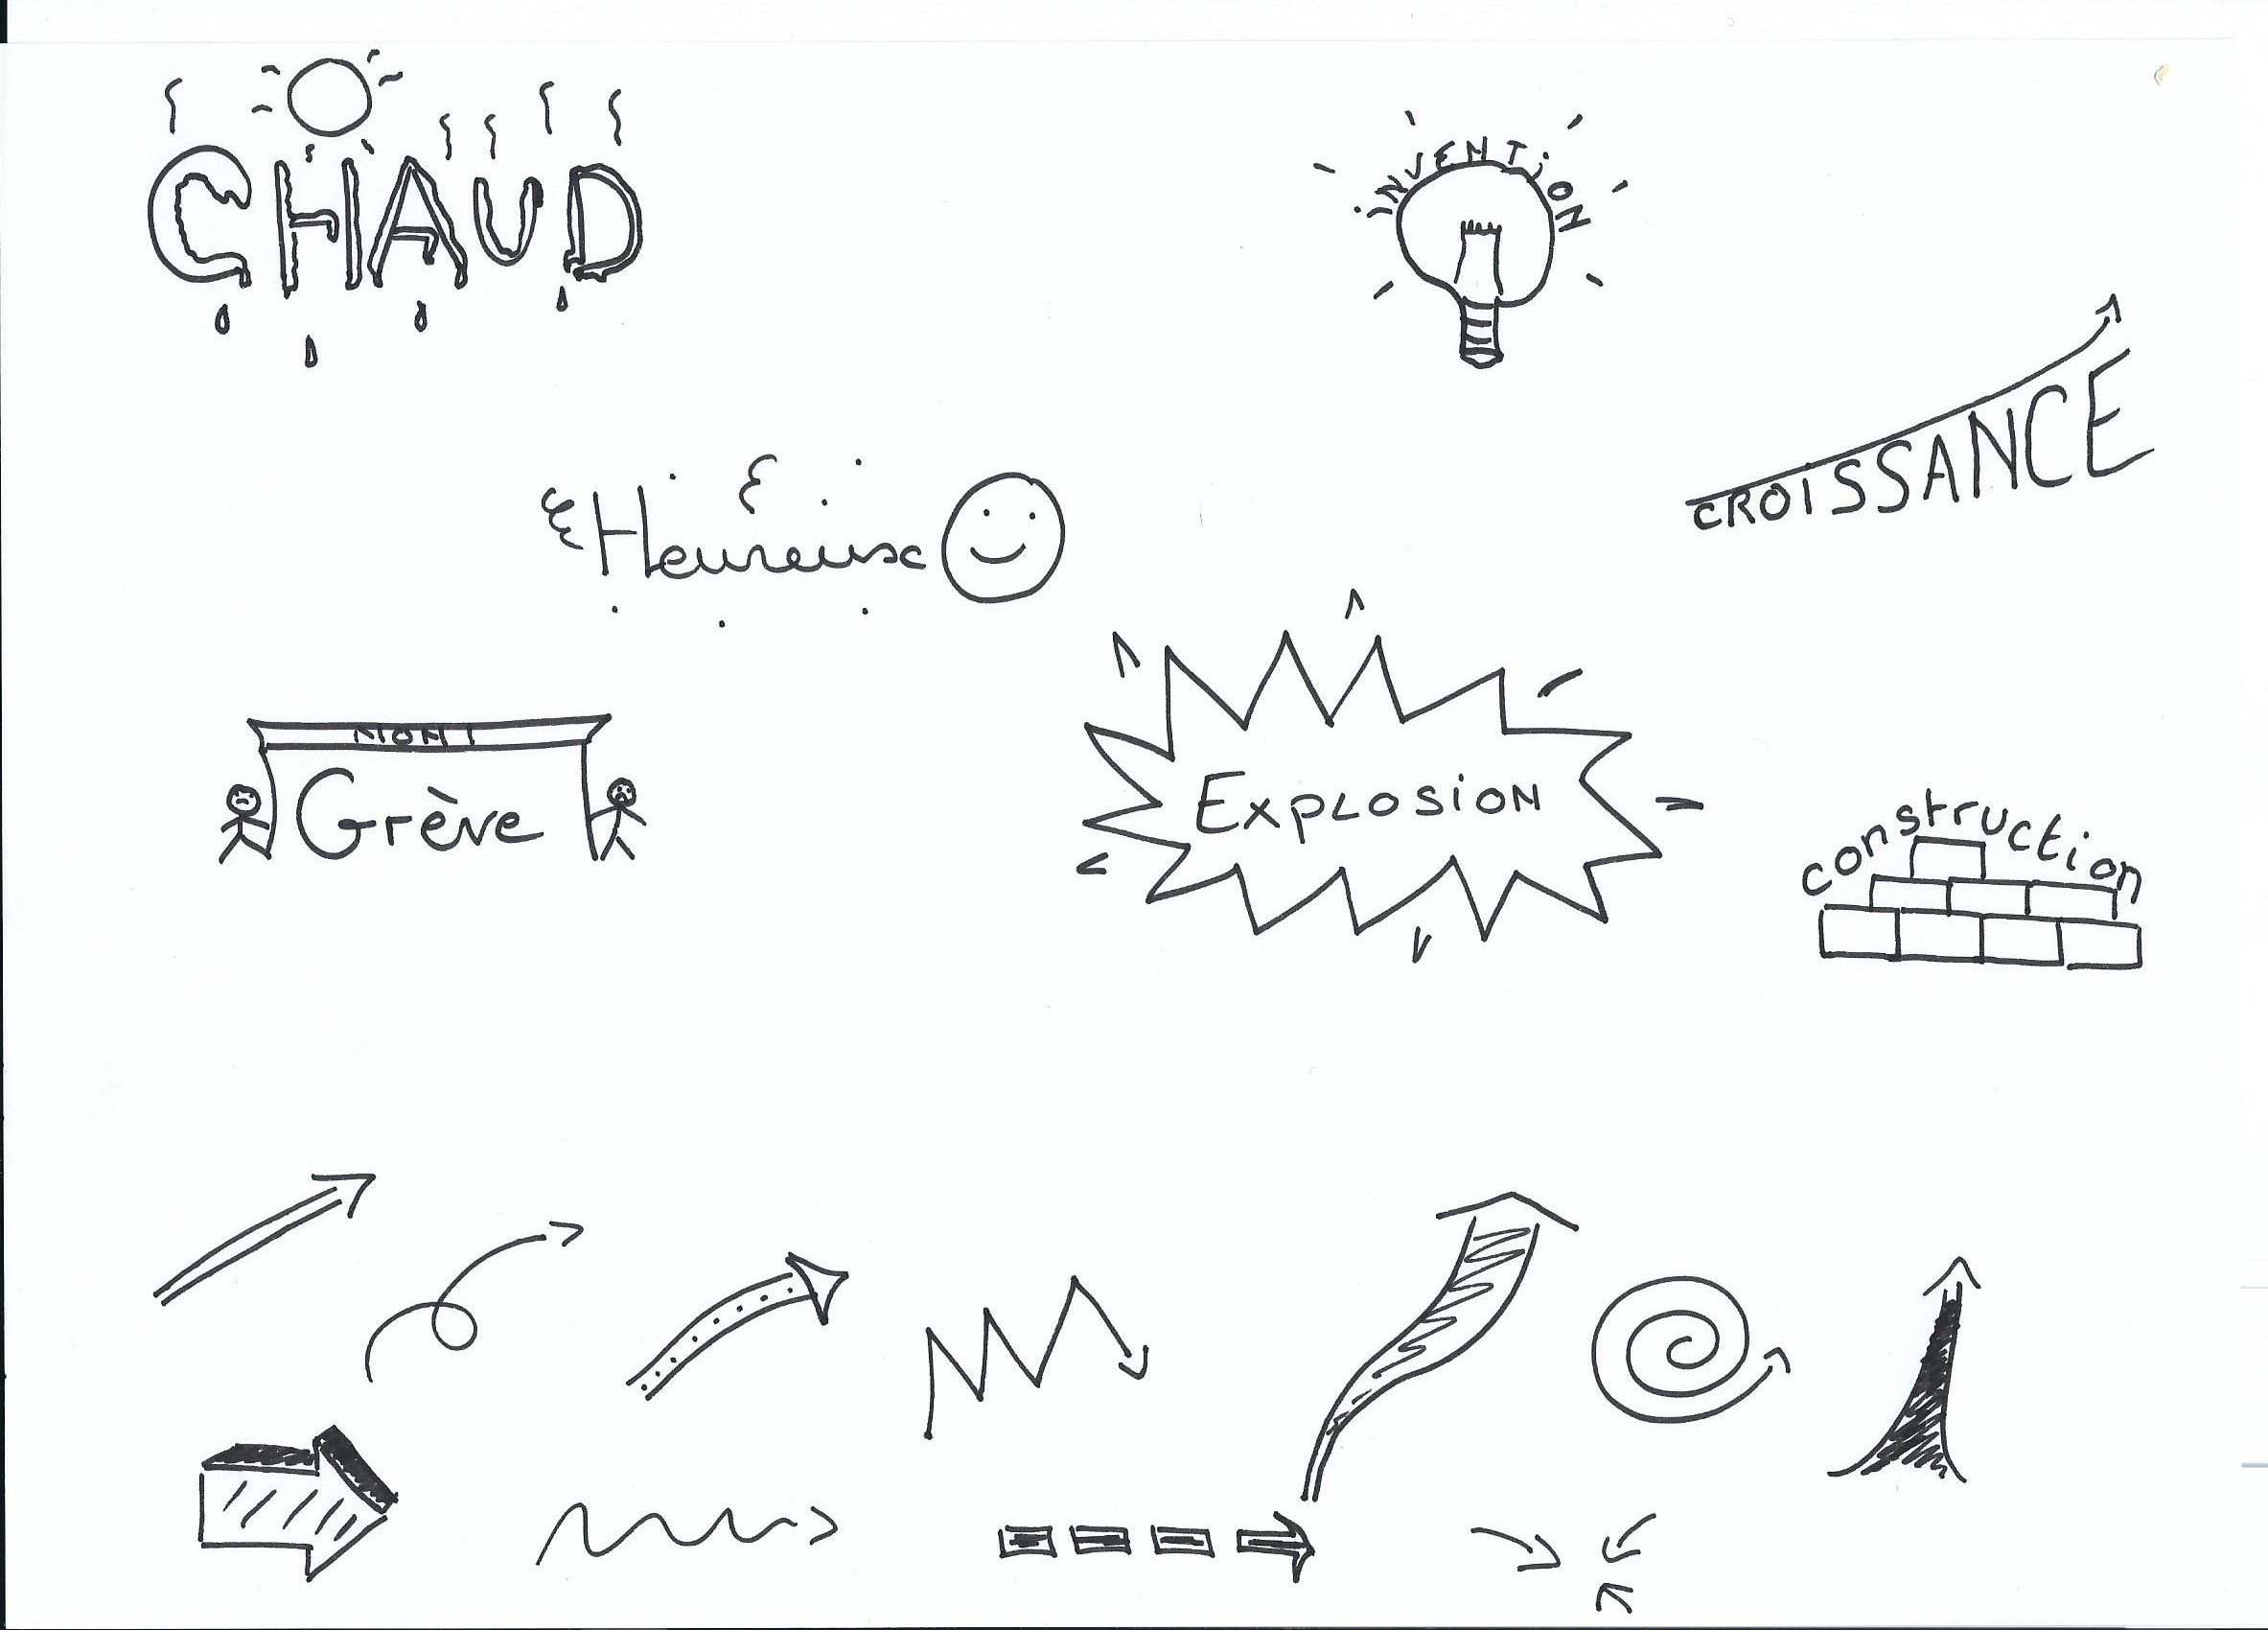 CHAUD
iNVENTiON
CROISSANCE
Heureuse
NON !
Grève
EXPLOSiON
construction